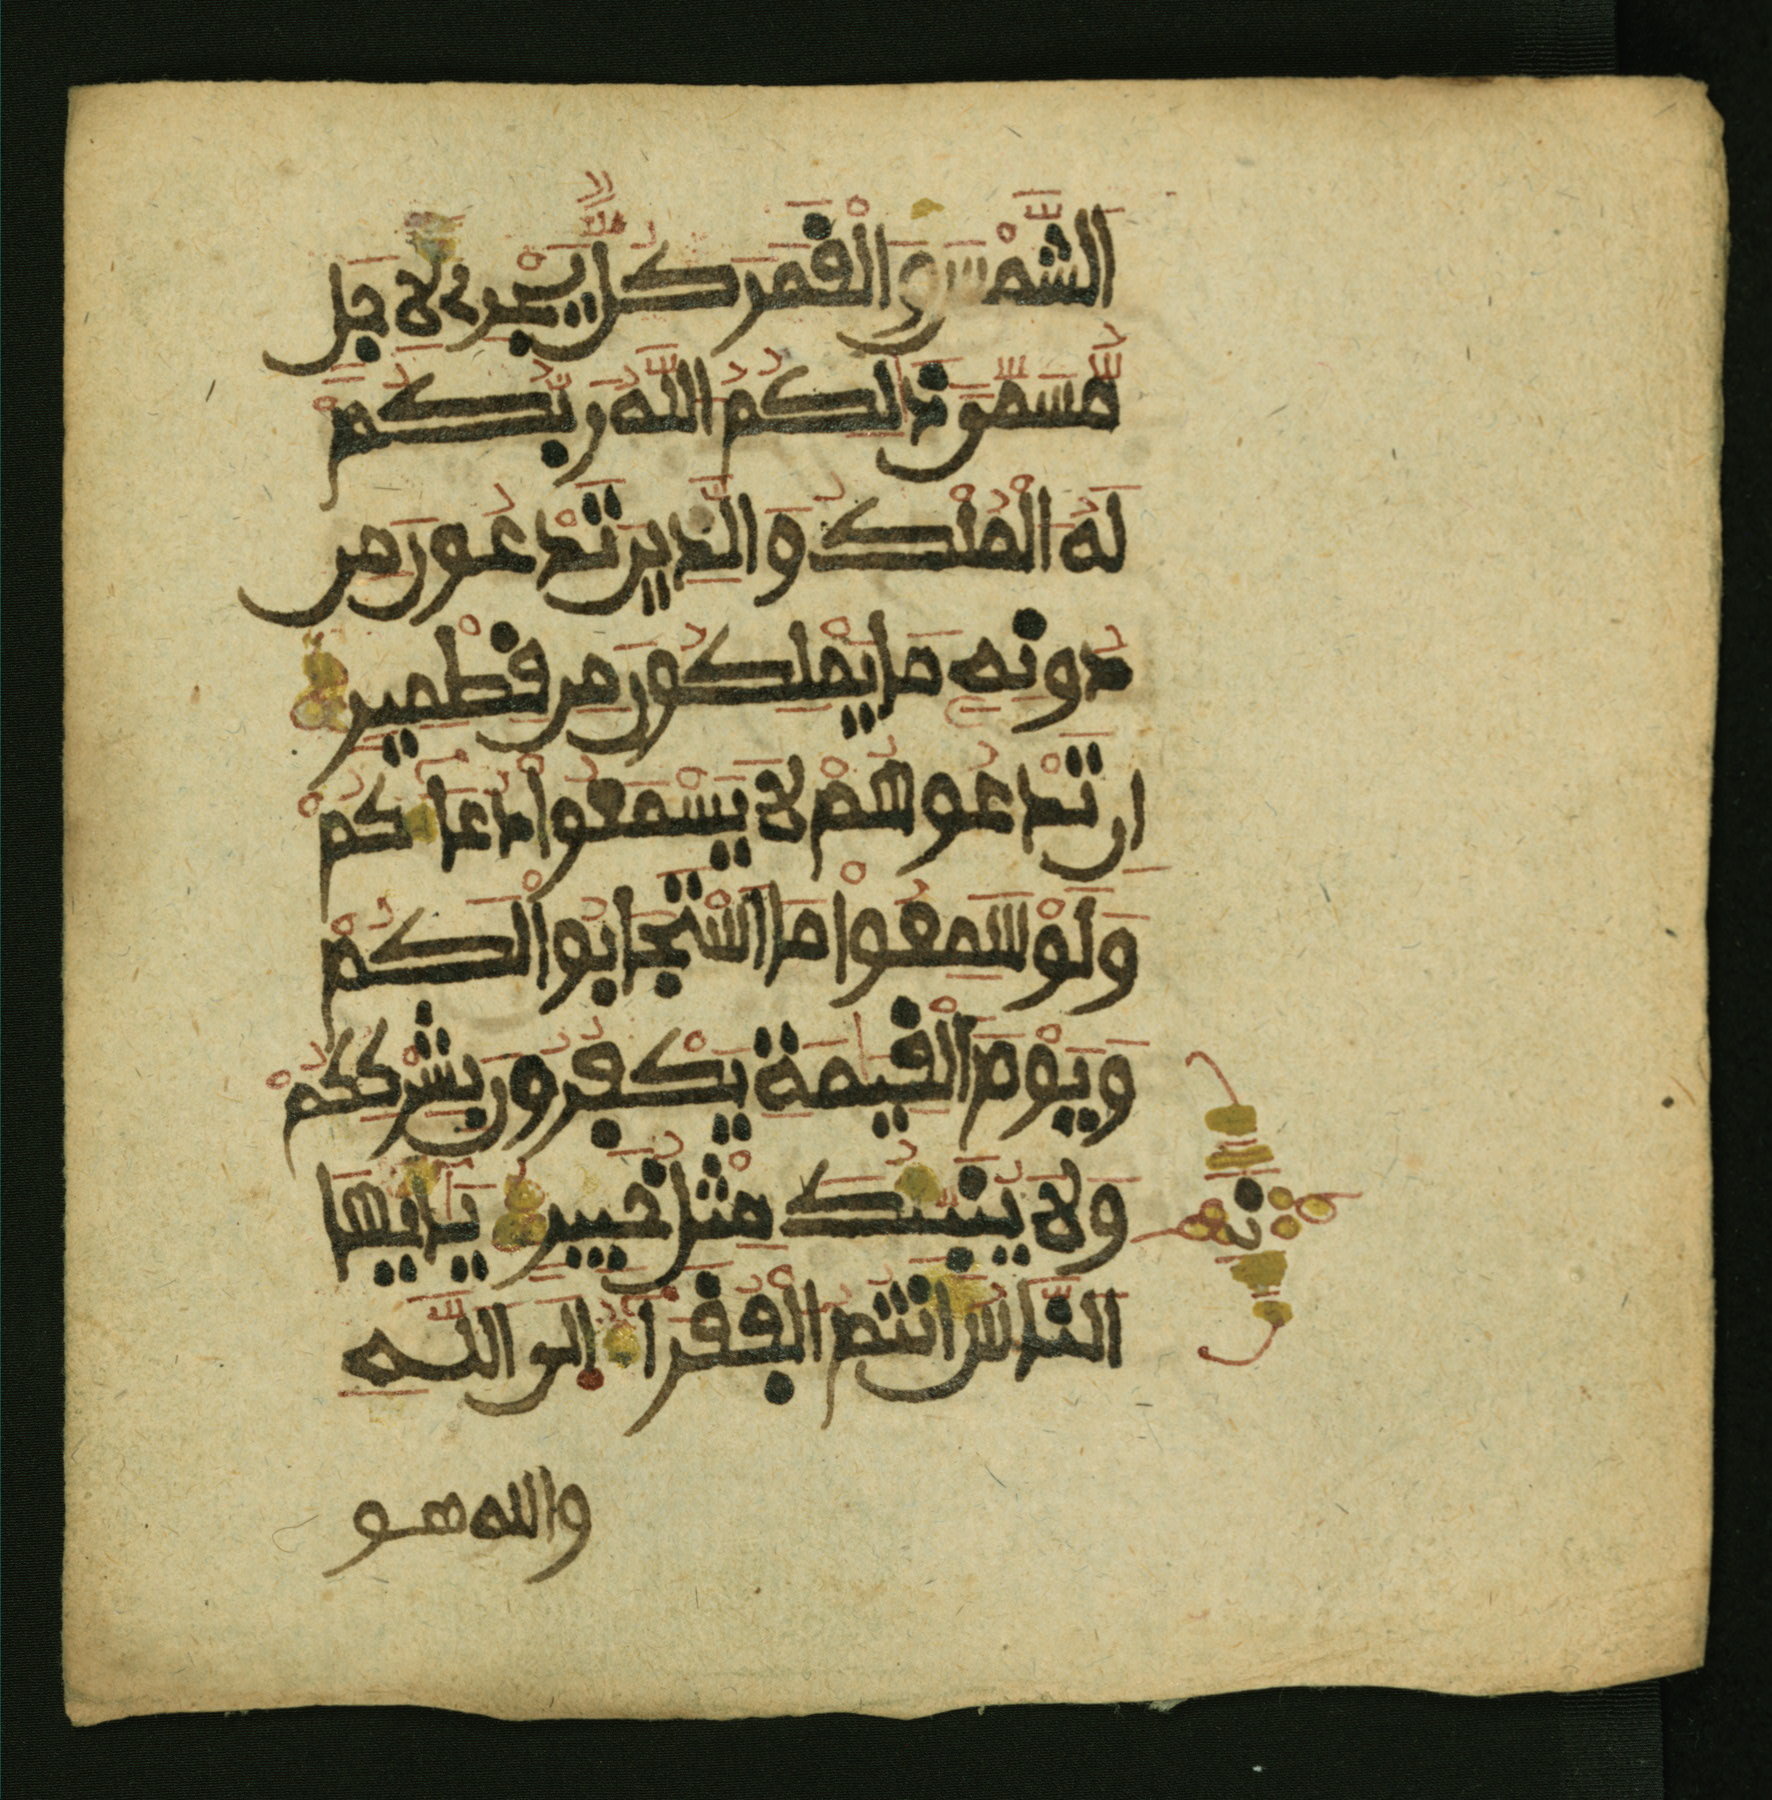 الشَّمْسَ وَالْقَمَرَ كُلٌّ يَجْرِى لِاَجَلٍ
مُّسَمًّى ذَٰلِكُمُ اللَّهُ رَبُّكُمْ
لَهُ الْمُلْكُ وَالَّذِينَ تَدْعُونَ مِن
دُونِهِ مَا يَمْلِكُونَ مِن قِطْمِيرٍ
إِن تَدْعُوهُمْ لَا يَسْمَعُوا دُعَاءَكُمْ
وَلَوْ سَمِعُوا مَا اسْتَجَابُوا لَكُمْ
وَيَوْمَ الْقِيَٰمَةِ يَكْفُرُونَ بِشِرْكِكُمْ
وَلَا يُنَبِّئُكَ مِثْلُ خَبِيرٍ يَٰأَيُّهَا
النَّاسُ أَنتُمُ الْفُقَرَاءُ إِلَى اللَّهِ
والله هو